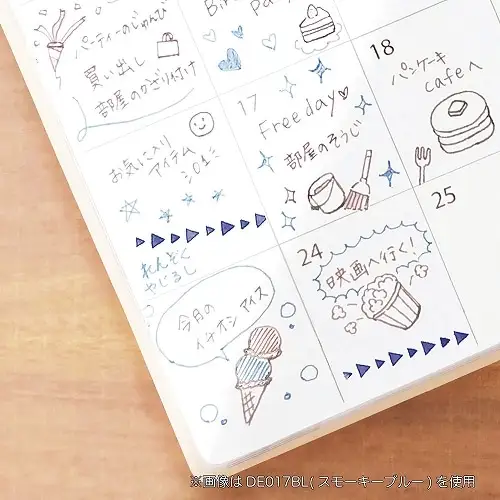 パーティーのじゅんび
買い出し
部屋のかざり付け
Bir
Pa
18
パンケーキ
cafeへ
17
Freeday♡
部屋のそうじ
お気に入り
アイテム
れんぞく
やじるし
今月の
イチオシ アイス
24
映画へ行く!
25
※画像はDE017BL(スモーキーブルー)を使用